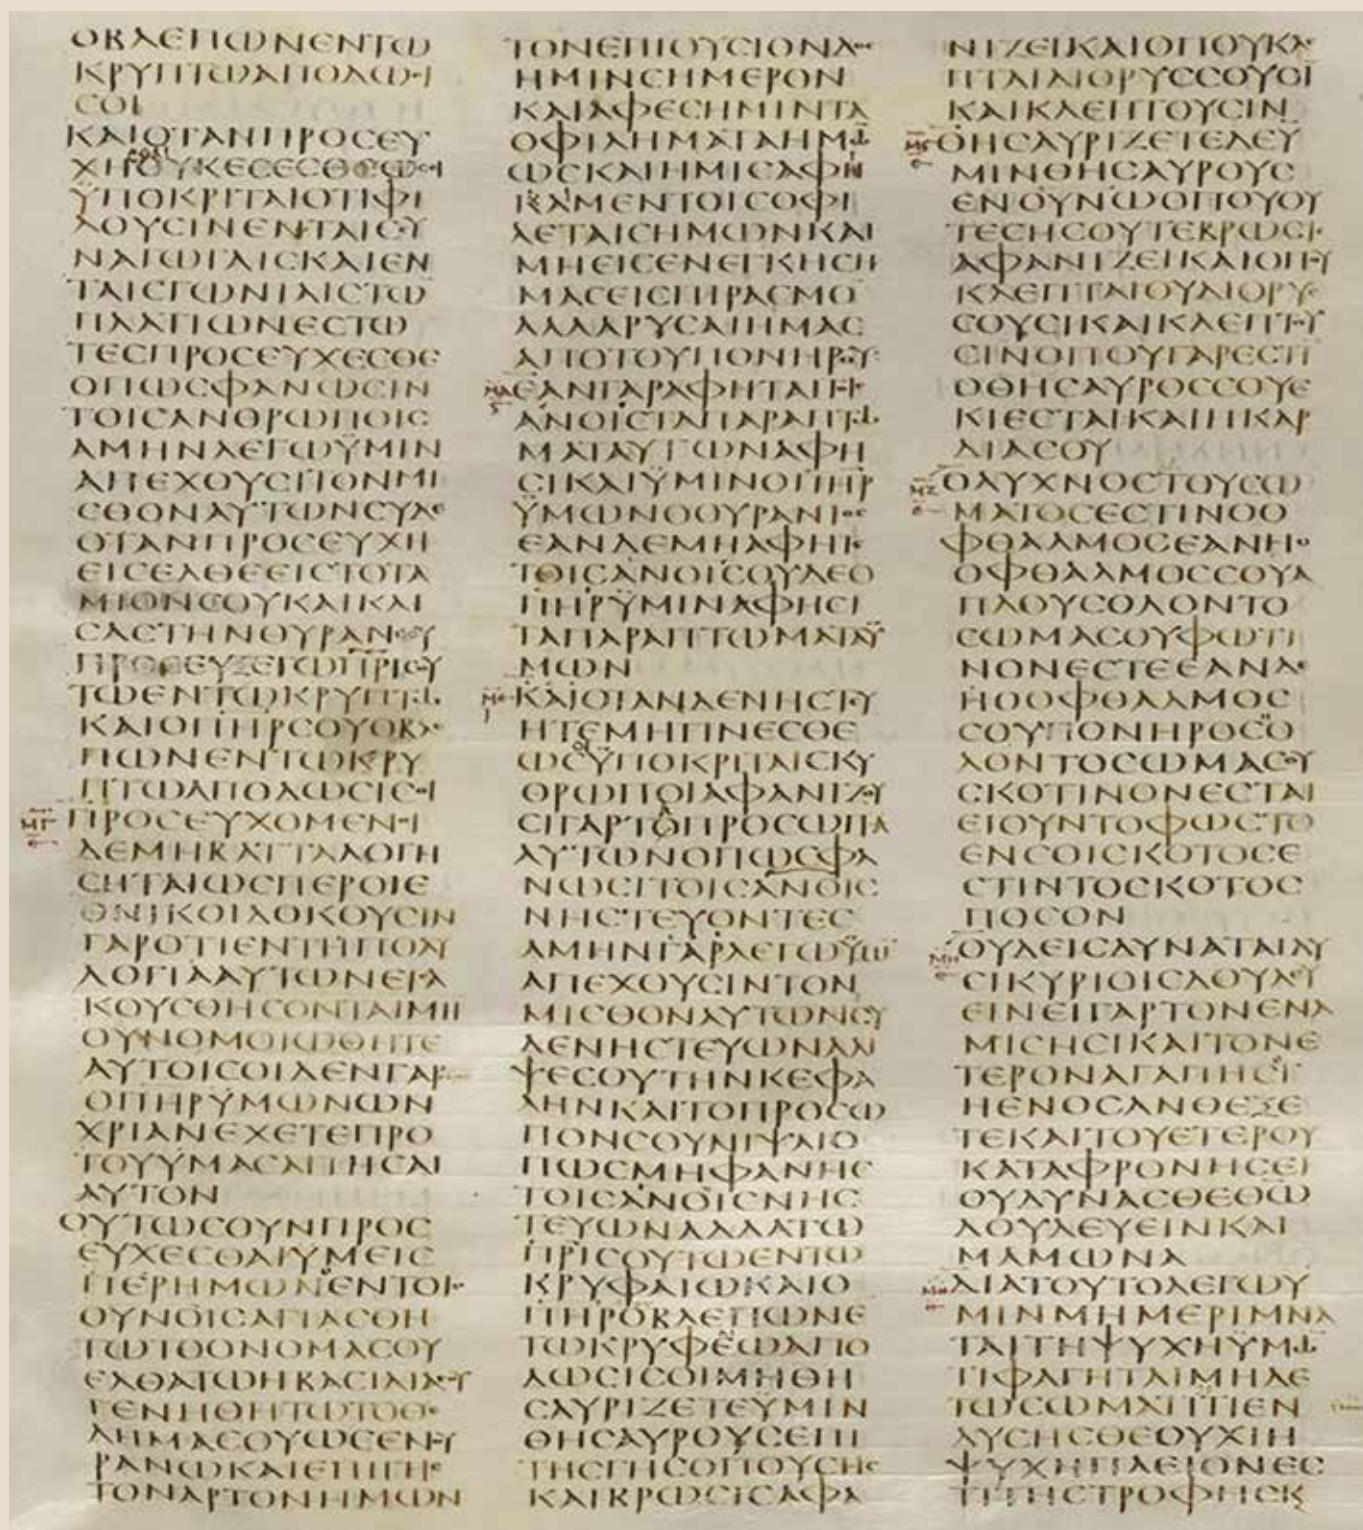 ΟΒΛΕΠΩΝΕΝΤΩ
ΚΡΥΠΤΩΑΠΟΔΩϹΙ
ϹΟΙ
ΚΑΙΟΤΑΝΠΡΟϹΕΥ
ΧΗΟΥΚΕϹΕϹΘΕΩϹΟΙ
ΫΠΟΚΡΙΤΑΙΟΤΙΦΙ
ΛΟΥϹΙΝΕΝΤΑΙϹϹΥ
ΝΑΓΩΓΑΙϹΚΑΙΕΝ
ΤΑΙϹΓΩΝΙΑΙϹΤΩ
ΠΛΑΤΙΩΝΕϹΤΩ
ΤΕϹΠΡΟϹΕΥΧΕϹΘΕ
ΟΠΩϹΦΑΝΩϹΙΝ
ΤΟΙϹΑΝΘΡΩΠΟΙϹ
ΑΜΗΝΛΕΓΩΫΜΙΝ
ΑΠΕΧΟΥϹΙΤΟΝΜΙ
ϹΘΟΝΑΥΤΩΝϹΥΔΕ
ΟΤΑΝΠΡΟϹΕΥΧΗ
ΕΙϹΕΛΘΕΕΙϹΤΟΤΑ
ΜΙΟΝϹΟΥΚΑΙΚΛΙ
ϹΑϹΤΗΝΘΥΡΑΝϹΟΥ
ΠΡΟϹΕΥΞΕΤΩΠΡΙϹΟΥ
ΤΩΕΝΤΩΚΡΥΠΤΩ
ΚΑΙΟΠΗΡϹΟΥΟΒΛΕ
ΠΩΝΕΝΤΩΚΡΥ
ΠΤΩΑΠΟΔΩϹΙϹΟΙ
ΜΓ ΠΡΟϹΕΥΧΟΜΕΝΟΙ
ΔΕΜΗΒΑΤΤΑΛΟΓΗ
ϹΗΤΑΙΩϹΠΕΡΟΙΕ
ΘΝΙΚΟΙΔΟΚΟΥϹΙΝ
ΓΑΡΟΤΙΕΝΤΗΠΟΛΥ
ΛΟΓΙΑΑΥΤΩΝΕΙϹΑ
ΚΟΥϹΘΗϹΟΝΤΑΙΜΗ
ΟΥΝΟΜΟΙΩΘΗΤΕ
ΑΥΤΟΙϹΟΙΔΕΝΓΑΡ
ΟΠΗΡΫΜΩΝΩΝ
ΧΡΙΑΝΕΧΕΤΕΠΡΟ
ΤΟΥΥΜΑϹΑΙΤΗϹΑΙ
ΑΥΤΟΝ
ΟΥΤΩϹΟΥΝΠΡΟϹ
ΕΥΧΕϹΘΑΙΥΜΕΙϹ
ΠΕΡΗΜΩΝΕΝΤΟΙϹ
ΟΥΝΟΙϹΑΓΙΑϹΘΗ
ΤΩΤΟΟΝΟΜΑϹΟΥ
ΕΛΘΑΤΩΗΒΑϹΙΛΙΑϹΟΥ
ΓΕΝΗΘΗΤΩΤΟΘΕ
ΛΗΜΑϹΟΥΩϹΕΝΟΥ
ΡΑΝΩΚΑΙΕΠΙΓΗϹ
ΤΟΝΑΡΤΟΝΗΜΩΝ
ΤΟΝΕΠΙΟΥϹΙΟΝΔΟϹ
ΗΜΙΝϹΗΜΕΡΟΝ
ΚΑΙΑΦΕϹΗΜΙΝΤΑ
ΟΦΙΛΗΜΑΤΑΗΜΩ
ΩϹΚΑΙΗΜΙϹΑΦΗ
ΚΑΜΕΝΤΟΙϹΟΦΙ
ΛΕΤΑΙϹΗΜΩΝΚΑΙ
ΜΗΕΙϹΕΝΕΓΚΗϹΗ
ΜΑϹΕΙϹΠΙΡΑϹΜΟ
ΑΛΛΑΡΥϹΑΙΗΜΑϹ
ΑΠΟΤΟΥΠΟΝΗΡΟΥ
ΜΔ ΕΑΝΓΑΡΑΦΗΤΑΙΤΟΙϹ
ΑΝΟΙϹΤΑΠΑΡΑΠΤΩ
ΜΑΤΑΑΥΤΩΝΑΦΗ
ϹΙΚΑΙΫΜΙΝΟΠΗΡ
ΫΜΩΝΟΟΥΡΑΝΙΟϹ
ΕΑΝΔΕΜΗΑΦΗΤΕ
ΤΟΙϹΑΝΟΙϹΟΥΔΕΟ
ΠΗΡΫΜΙΝΑΦΗϹΙ
ΤΑΠΑΡΑΠΤΩΜΑΤΑΫ
ΜΩΝ
ΜΕ ΚΑΙΟΤΑΝΔΕΝΗϹΤΕΥ
ΗΤΕΜΗΓΙΝΕϹΘΕ
ΩϹΫΠΟΚΡΙΤΑΙϹΚΥ
ΘΡΩΠΟΙΑΦΑΝΙΖΟΥ
ϹΙΓΑΡΤΟΠΡΟϹΩΠΑ
ΑΥΤΩΝΟΠΩϹΦΑ
ΝΩϹΙΤΟΙϹΑΝΟΙϹ
ΝΗϹΤΕΥΟΝΤΕϹ
ΑΜΗΝΓΑΡΛΕΓΩΫΜΙ
ΑΠΕΧΟΥϹΙΝΤΟΝ
ΜΙϹΘΟΝΑΥΤΩΝϹΥ
ΔΕΝΗϹΤΕΥΩΝΑΛΙ
ΨΕϹΟΥΤΗΝΚΕΦΑ
ΛΗΝΚΑΙΤΟΠΡΟϹΩ
ΠΟΝϹΟΥΝΙΨΑΙΟ
ΠΩϹΜΗΦΑΝΗϹ
ΤΟΙϹΑΝΟΙϹΝΗϹ
ΤΕΥΩΝΑΛΛΑΤΩ
ΠΡΙϹΟΥΤΩΕΝΤΩ
ΚΡΥΦΑΙΩΚΑΙΟ
ΠΗΡΟΒΛΕΠΩΝΕ
ΤΩΚΡΥΦΕΩΑΠΟ
ΔΩϹΙϹΟΙΜΗΘΗ
ϹΑΥΡΙΖΕΤΕΥΜΙΝ
ΘΗϹΑΥΡΟΥϹΕΠΙ
ΤΗϹΓΗϹΟΠΟΥϹΗϹ
ΚΑΙΒΡΩϹΙϹΑΦΑ
ΝΙΖΕΙΚΑΙΟΠΟΥΚΛΕ
ΠΤΑΙΔΙΟΡΥϹϹΟΥϹΙ
ΚΑΙΚΛΕΠΤΟΥϹΙΝ
ΜϚ ΘΗϹΑΥΡΙΖΕΤΕΔΕΥ
ΜΙΝΘΗϹΑΥΡΟΥϹ
ΕΝΟΥΝΩΟΠΟΥΟΥ
ΤΕϹΗϹΟΥΤΕΒΡΩϹΙϹ
ΑΦΑΝΙΖΕΙΚΑΙΟΠΟΥ
ΚΛΕΠΤΑΙΟΥΔΙΟΡΥϹ
ϹΟΥϹΙΚΑΙΚΛΕΠΤΟΥ
ϹΙΝΟΠΟΥΓΑΡΕϹΤΙ
ΟΘΗϹΑΥΡΟϹϹΟΥΕ
ΚΙΕϹΤΑΙΚΑΙΗΚΑΡ
ΔΙΑϹΟΥ
ΜΖ ΟΛΥΧΝΟϹΤΟΥϹΩ
ΜΑΤΟϹΕϹΤΙΝΟΟ
ΦΘΑΛΜΟϹΕΑΝΗ
ΟΦΘΑΛΜΟϹϹΟΥΑ
ΠΛΟΥϹΟΛΟΝΤΟ
ϹΩΜΑϹΟΥΦΩΤΙ
ΝΟΝΕϹΤΕΕΑΝΔΕ
ΗΟΟΦΘΑΛΜΟϹ
ϹΟΥΠΟΝΗΡΟϹΟ
ΛΟΝΤΟϹΩΜΑϹΟΥ
ϹΚΟΤΙΝΟΝΕϹΤΑΙ
ΕΙΟΥΝΤΟΦΩϹΤΟ
ΕΝϹΟΙϹΚΟΤΟϹΕ
ϹΤΙΝΤΟϹΚΟΤΟϹ
ΠΟϹΟΝ
ΜΗ ΟΥΔΕΙϹΔΥΝΑΤΑΙΔΥ
ϹΙΚΥΡΙΟΙϹΔΟΥΛΕΥ
ΕΙΝΕΙΓΑΡΤΟΝΕΝΑ
ΜΙϹΗϹΙΚΑΙΤΟΝΕ
ΤΕΡΟΝΑΓΑΠΗϹΙ
ΗΕΝΟϹΑΝΘΕΞΕ
ΤΕΚΑΙΤΟΥΕΤΕΡΟΥ
ΚΑΤΑΦΡΟΝΗϹΕΙ
ΟΥΔΥΝΑϹΘΕΘΩ
ΔΟΥΛΕΥΕΙΝΚΑΙ
ΜΑΜΩΝΑ
ΜΘ ΔΙΑΤΟΥΤΟΛΕΓΩΥ
ΜΙΝΜΗΜΕΡΙΜΝΑ
ΤΑΙΤΗΨΥΧΗΥΜΩ
ΤΙΦΑΓΗΤΑΙΜΗΔΕ
ΤΩϹΩΜΑΤΙΤΙΕΝ
ΔΥϹΗϹΘΕΟΥΧΙΗ
ΨΥΧΗΠΛΕΙΟΝΕϹ
ΤΙΤΗϹΤΡΟΦΗϹΚ